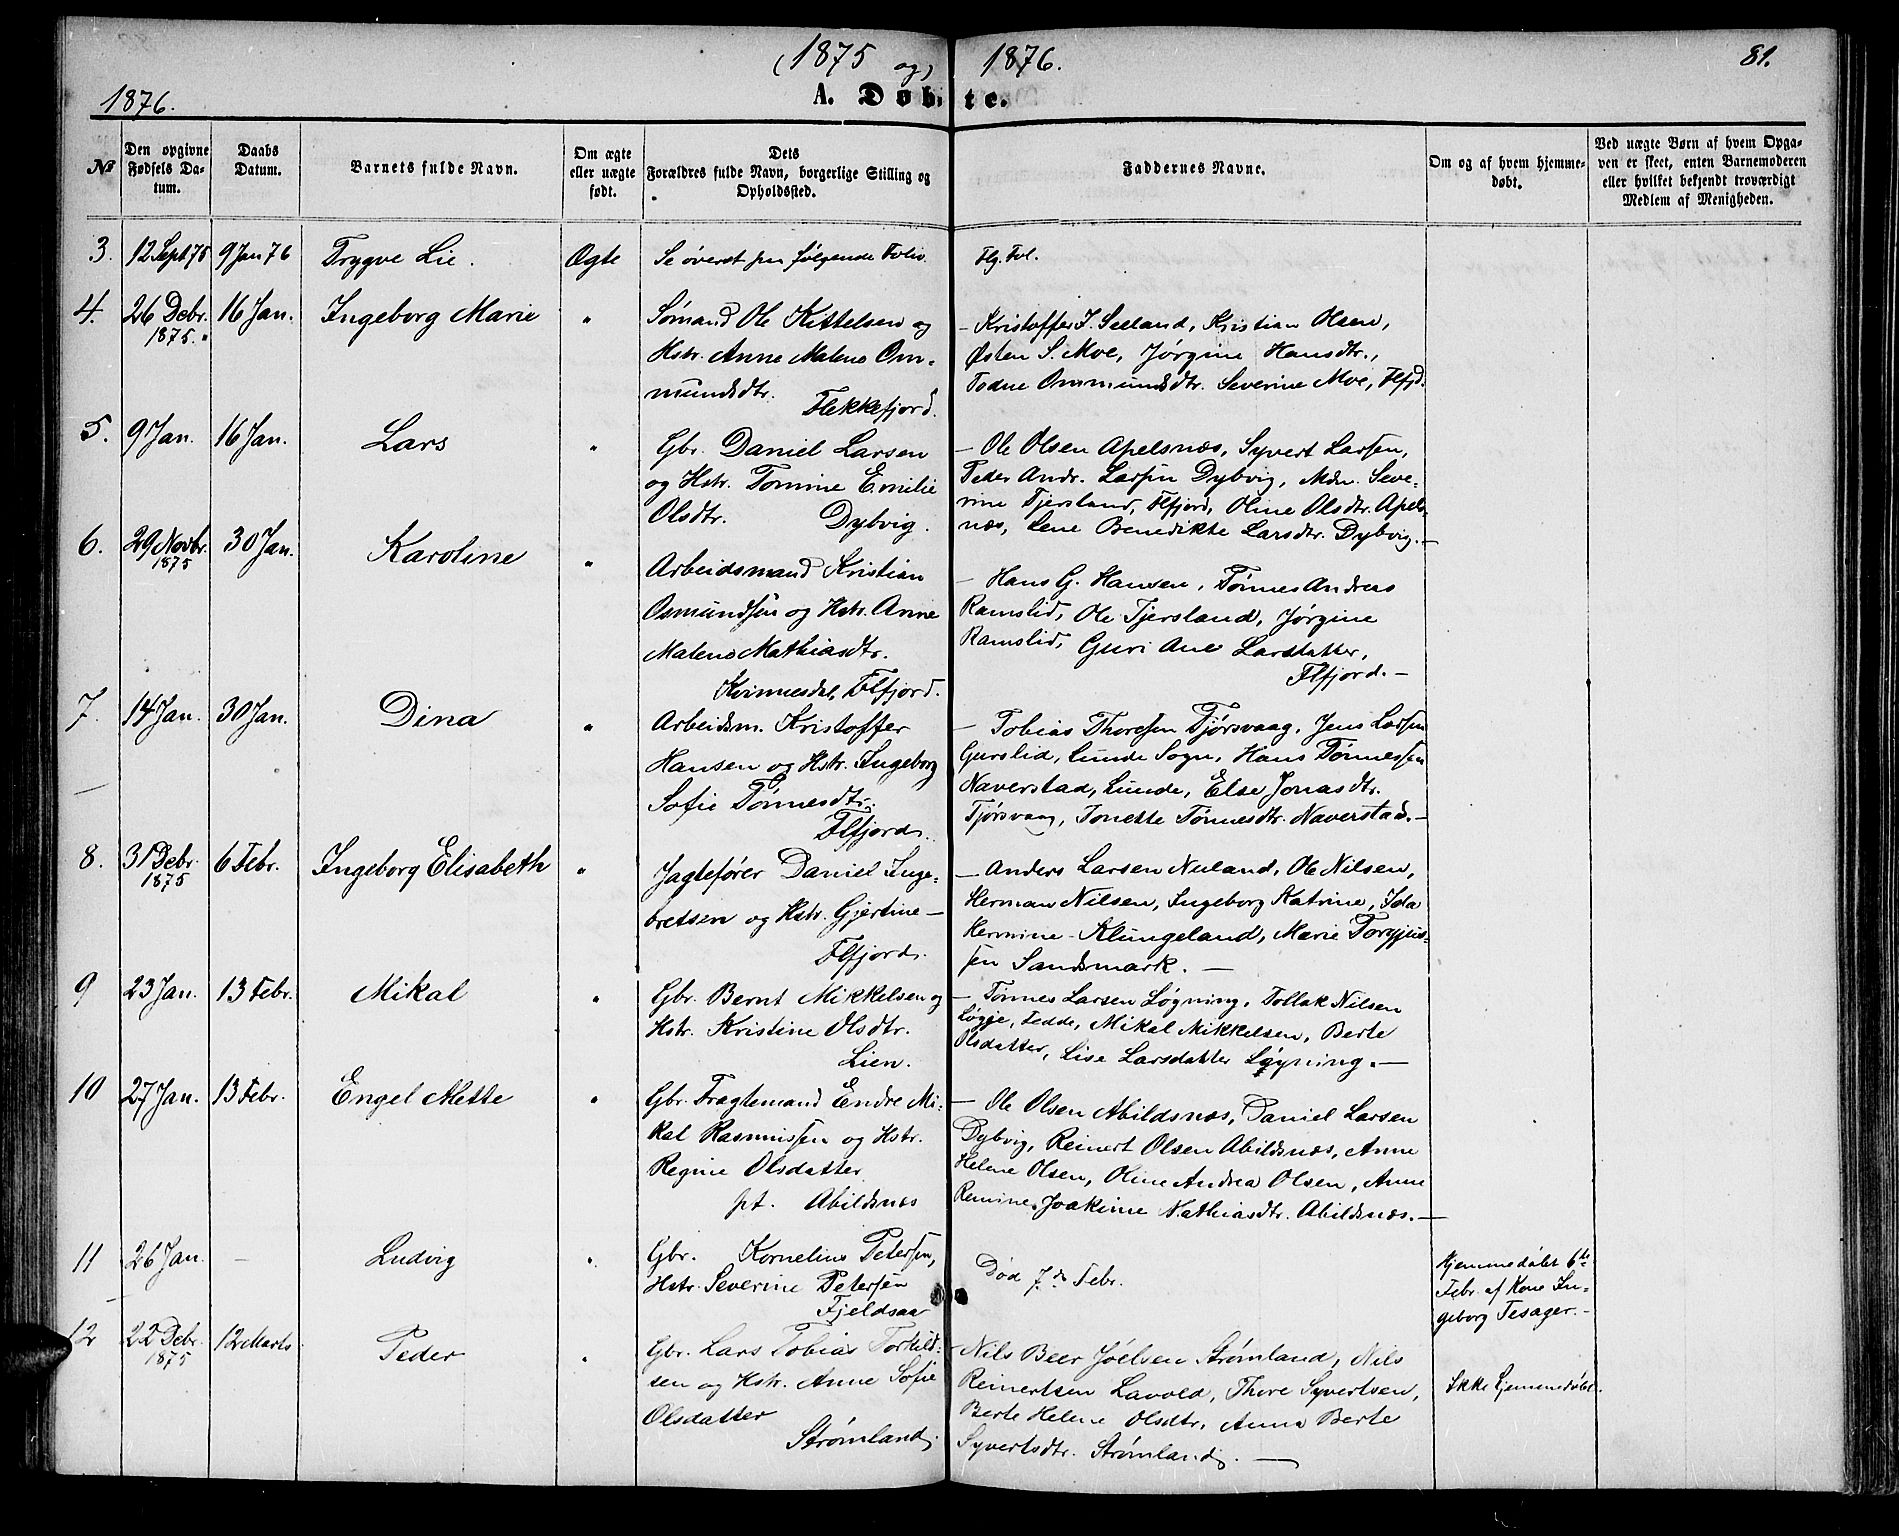 (1875 og) 1876.
81.
1876.
A. Døbte.
No
Den opgivne Fødsels Da-
tum.
Daabs Datum.
Barnets fulde Navn.
Om ægte eller uægte født.
Dets
Forældres fulde Navn, borgerlige Stilling og Opholdssted.
Faddernes Navne.
Om og af hvem hjemme-
døbt.
Ved uægte Børn af hvem Opga-
ven er skeet, enten Barnemoderen
eller hvilket bekjendt troværdigt
Medlem af Menigheden.
3. 12 Sept 75 9 Jan 76 Trygve Lie. Ægte Se øverst paa følgende Folio. Flg. Fol.
4. 26 Debr. 1875. 16 Jan. Ingeborg Marie "
Sømand Ole Kittelsen og
Hstr. Anne Malene Om-
mundsdtr.
Flekkefjord.
- Kristoffer J. Seeland, Kristian Olsen,
Østen S. Moe, Jørgine Hansdtr.,
Todne Ommundsdtr. Severine Moe, Flfjd.
5. 9 Jan. 16 Jan. Lars "
Gbr. Daniel Larsen
og Hstr. Tomine Emilie
Olsdtr. Dybvig.
- Ole Olsen Apelsnæs, Syvert Larsen,
Peder Andr. Larsen Dybvig, Mdm. Seve-
rine Tjersland, Flfjord, Oline Olsdtr. Apels-
næs, Lene Benedikte Larsdtr. Dybvig. -
6. 29 Novbr. 1875 30 Jan. Karoline "
Arbeidsmand Kristian
Osmundsen og Hstr. Anne
Malene Mathiasdtr.
Kvinnesdal, Flfjord.
- Hans G. Hansen, Tønnes Andreas
Ramslid, Ole Tjersland, Jørgine
Ramslid, Guri Ane Larsdatter,
Flfjord. -
7. 14 Jan. 30 Jan. Dina "
Arbeidsm. Kristoffer
Hansen og Hstr. Ingeborg
Sofie Tønnesdtr.
Flfjord.
- Tobias Thoresen Tjørsvaag, Jens Larsen
Gurslid, Lunde Sogn, Hans Tønnessen
Naverstad, Lunde, Else Jonasdtr.
Tjørsvaag, Tonette Tønnesdtr. Naverstad. -
8. 31 Debr. 1875 6 Febr. Ingeborg Elisabeth "
Jagtefører Daniel Inge-
bretsen og Hstr. Gjertine -
Flfjord.
- Anders Larsen Nuland, Ole Nilsen,
Herman Nilsen, Ingeborg Katrine, Ida
Hermine Klungeland, Marie Torgjus-
sen Sandsmark. -
9 23 Jan. 13 Febr. Mikal "
Gbr. Bernt Mikkelsen og
Hstr. Kristine Olsdtr.
Lien.
- Tønnes Larsen Løgning, Tollak Nilsen
Løgje, Fedde, Mikal Mikkelsen, Berte
Olsdatter, Lise Larsdatter Løgning. -
10 27 Jan. 13 Febr. Engel Mette "
Gbr. Fragtemand Endre Mi-
kal Rasmussen og Hstr.
Regine Olsdatter
pt. Abildsnæs
- Ole Olsen Abildsnæs, Daniel Larsen
Dybvig, Reinert Olsen Abildsnæs, Anne
Helene Olsen, Oline Andrea Olsen, Anne
Remine, Joakime Mathiasdtr. Abildsnæs. -
11 26 Jan. - Ludvig "
Gbr. Kornelius Petersen,
Hstr. Severine Petersen
Fjeldsaa
Død 7de Febr.
Hjemmedøbt 6te
Febr. af Kone In-
geborg Tesager. -
12 22 Debr. 1875 12 Marts Peder "
Gbr. Lars Tobias Torkild-
sen og Hstr. Anne Sofie
Olsdatter
Strømland.
Nils Beer Joelsen Strømland, Nils
Reinertsen Lavold, Thore Syvertsen,
Berte Helene Olsdtr., Anna Berte
Syvertsdtr. Strømland. -
Ikke hjemmedøbt.